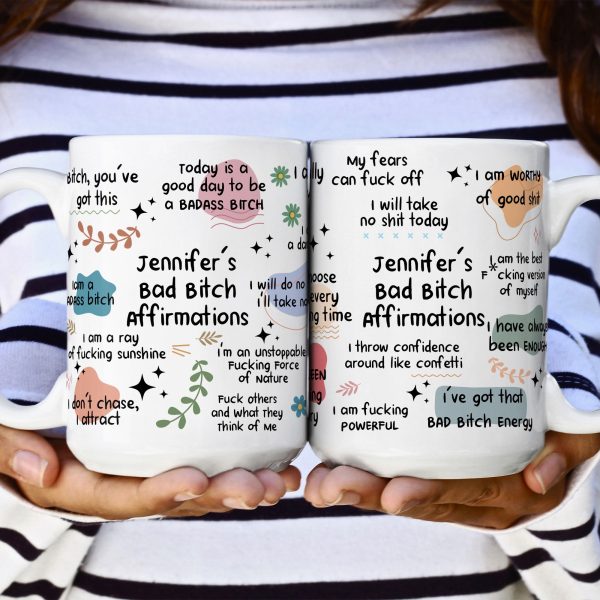 Bitch, you've
got this
Today is a
good day to be
a BADASS BITCH
Jennifer's
Bad Bitch
Affirmations
I am a
BADASS bitch
I will do no
I'll take no
I am a ray
of fucking sunshine
I'm an unstoppable
Fucking Force
of Nature
I don't chase,
I attract
Fuck others
and what They
Think of Me
My fears
can fuck off
I am WORTHY
of good shit
I will take
no shit today
Jennifer's
Bad Bitch
Affirmations
I am the best
F*cking version
of myself
every
time
I have always
been ENOUGH
I throw confidence
around like confetti
I am fucking
POWERFUL
i've got that
BAD Bitch Energy